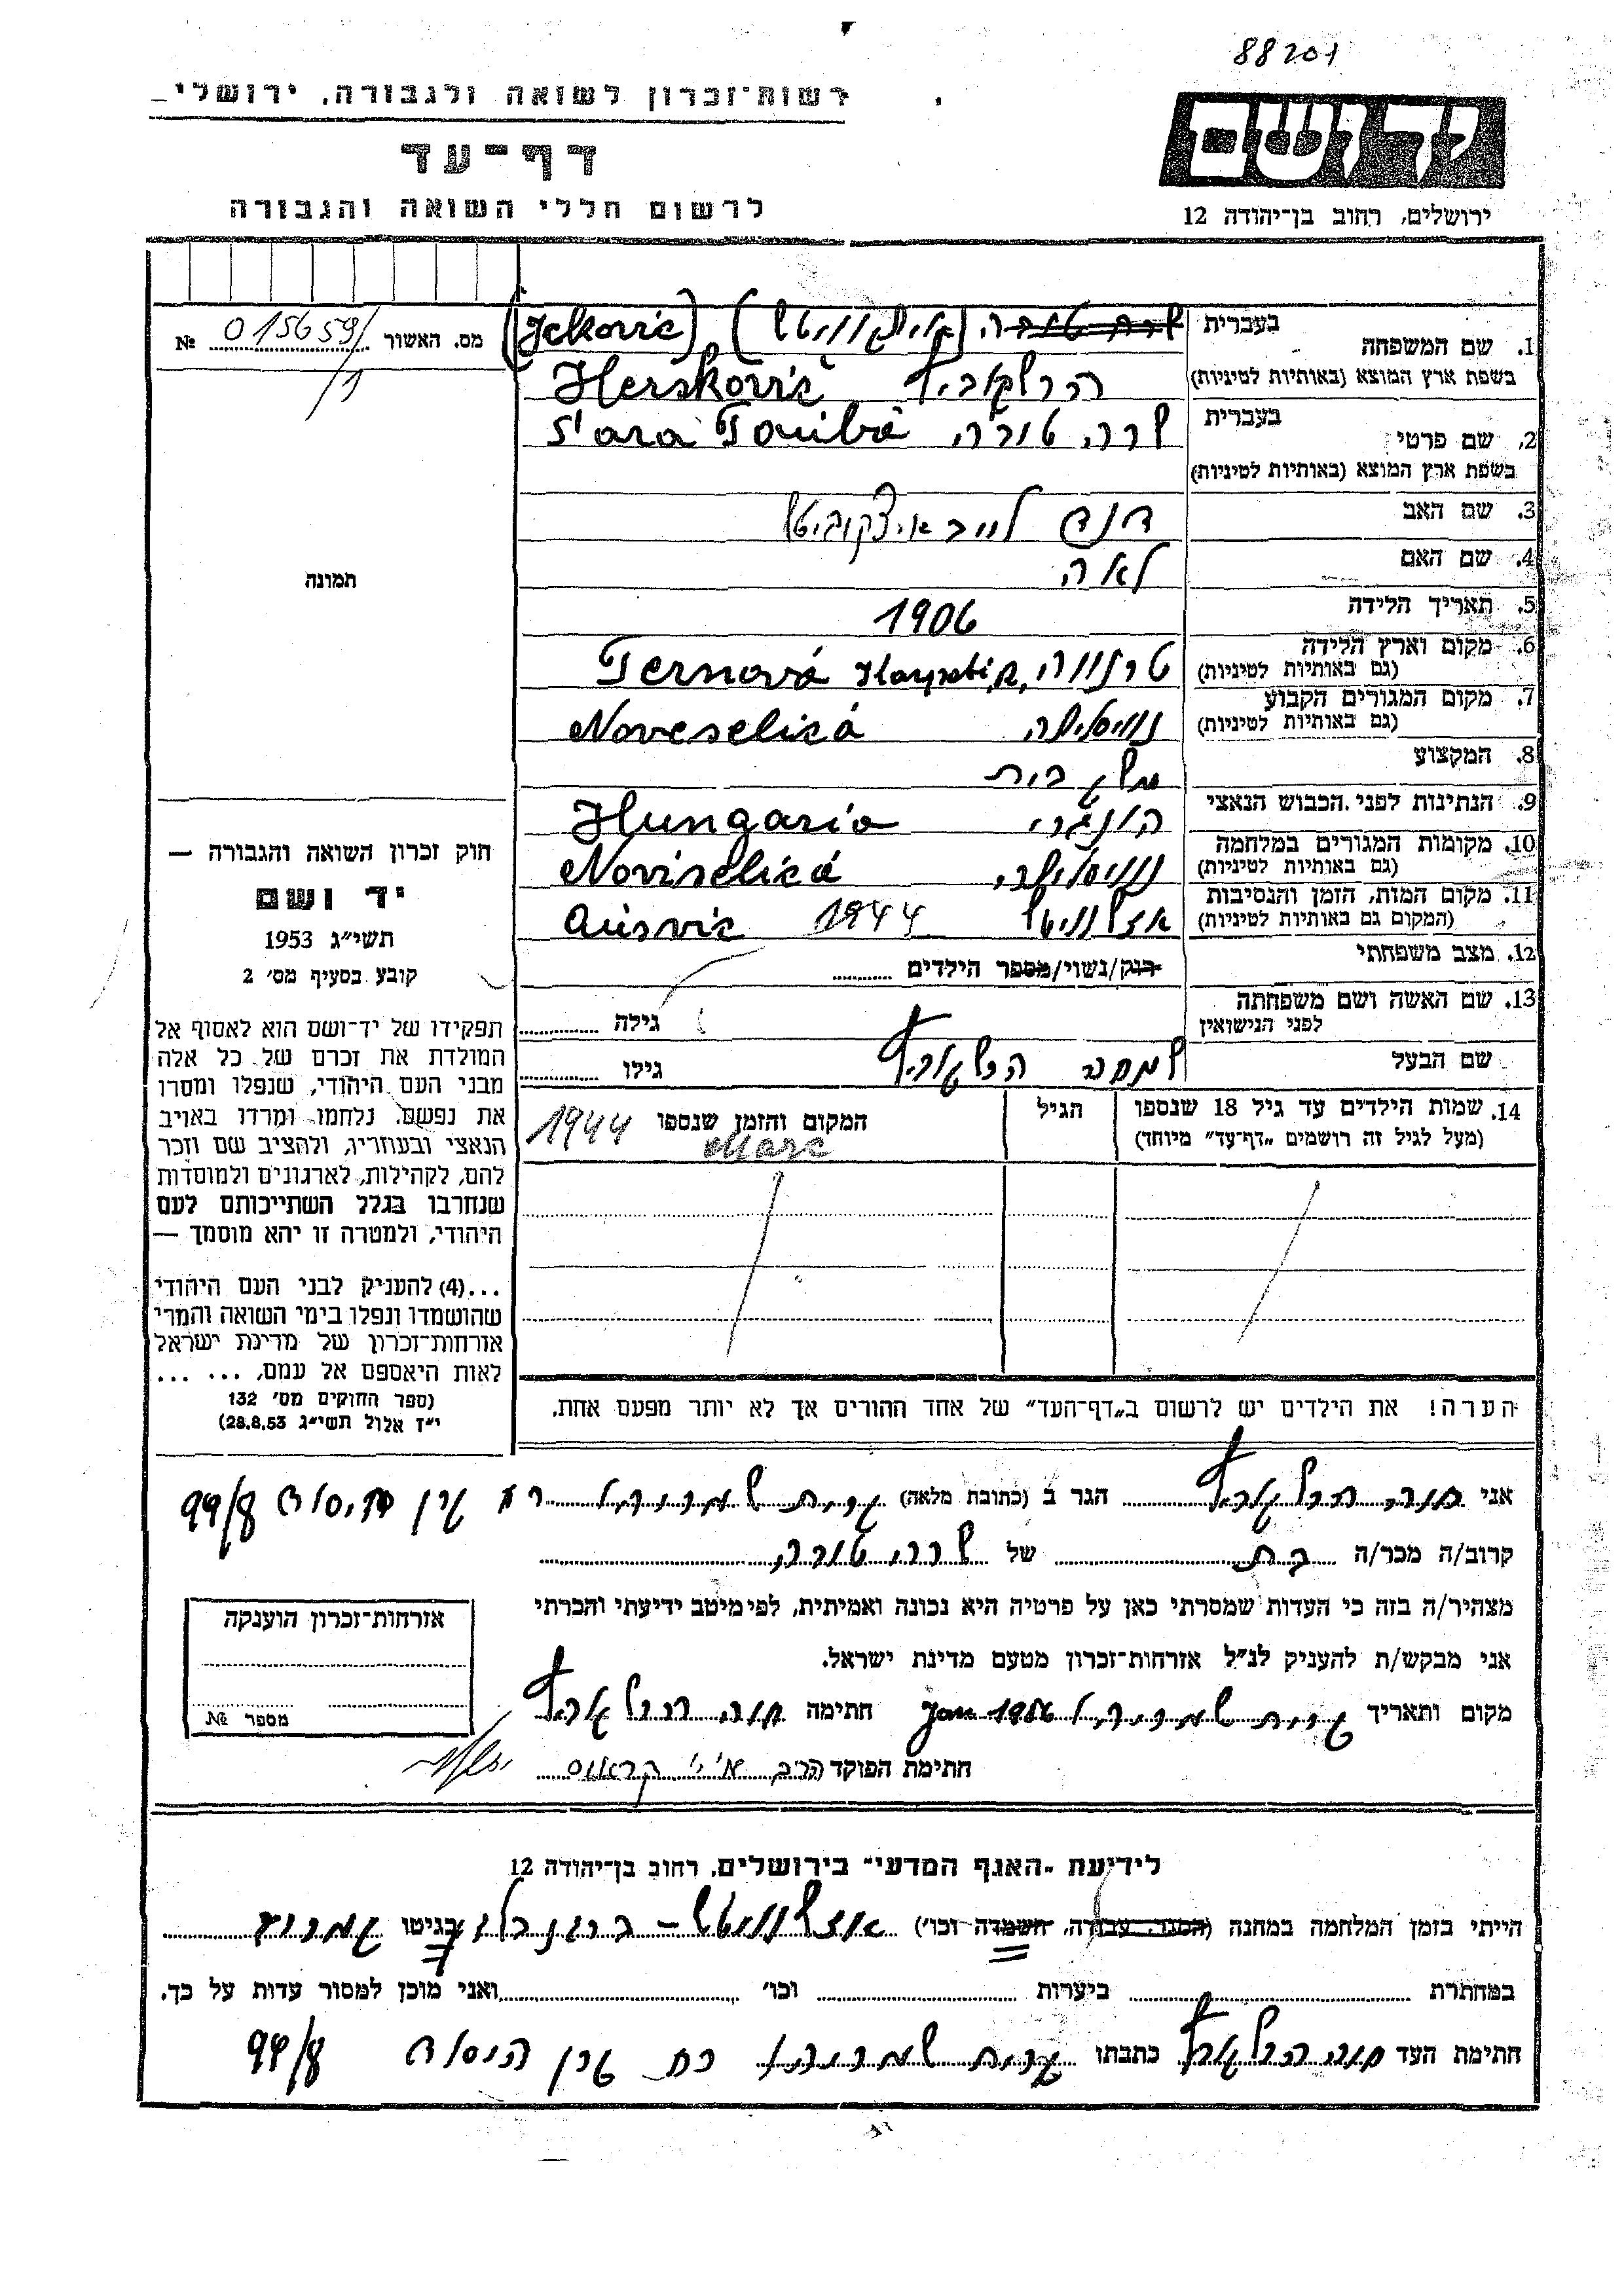 88201
רשות־זכרון לשואה ולגבורה, ירושלי
דף־עד
לרשום חללי השואה והגבורה
יד ושם
ירושלים, רחוב בן־יהודה 12
מס. האשור 015659/ №
/1
תמונה
חוק זכרון השואה והגבורה —
יד ושם
תשי״ג 1953
קובע בסעיף מס׳ 2
תפקידו של יד־ושם הוא לאסוף אל
המולדת את זכרם של כל אלה
מבני העם היהודי, שנפלו ומסרו
את נפשם, נלחמו ומרדו באויב
הנאצי ובעוזריו, ולהציב שם וזכר
להם, לקהילות, לארגונים ולמוסדות
שנחרבו בגלל השתייכותם לעם
היהודי, ולמטרה זו יהא מוסמך —
...(4) להעניק לבני העם היהודי
שהושמדו ונפלו בימי השואה והמרי
אזרחות־זכרון של מדינת ישראל
לאות היאספם אל עמם, ... ...
(ספר החוקים מס׳ 132
י״ז אלול תשי״ג 28.8.53)
1. שם המשפחה בעברית (Jckovic)
בשפת ארץ המוצא (באותיות לטיניות) הרשקוביץ Herskovic
2. שם פרטי בעברית שרה טובה S'ara Toubá
בשפת ארץ המוצא (באותיות לטיניות)
3. שם האב דוד לייב איצקוביטש
4. שם האם לאה
5. תאריך הלידה 1906
6. מקום וארץ הלידה (גם באותיות לטיניות) טרנווה, Ternová
7. מקום המגורים הקבוע (גם באותיות לטיניות) נוויסליצה Noveselicá
8. המקצוע עקרת בית
9. הנתינות לפני הכבוש הנאצי הונגרי Hungaria
10. מקומות המגורים במלחמה (גם באותיות לטיניות) נוויסליצה, Noviselicá
11. מקום המות, הזמן והנסיבות (המקום גם באותיות לטיניות) אושוויטש 1944 Ausvic
12. מצב משפחתי רוק/נשוי/מספר הילדים
13. שם האשה ושם משפחתה לפני הנישואין גילה
שם הבעל הרשקוביץ גילו
14. שמות הילדים עד גיל 18 שנספו (מעל לגיל זה רושמים „דף־עד״ מיוחד) הגיל המקום והזמן שנספו 1944
Marc
הערה! את הילדים יש לרשום ב„דף־העד״ של אחד ההורים אך לא יותר מפעם אחת.
אני חוה הרשקוביץ הגר ב (כתובת מלאה) קרית שמונה רח עין 99/8
קרוב/ה מכר/ה בת של שרה טובה
מצהיר/ה בזה כי העדות שמסרתי כאן על פרטיה היא נכונה ואמיתית, לפי מיטב ידיעתי והכרתי
אני מבקש/ת להעניק לנ״ל אזרחות־זכרון מטעם מדינת ישראל.
מקום ותאריך קרית שמונה Jan 1956 חתימה חוה הרשקוביץ
חתימת הפוקד הרב קראוס
אזרחות־זכרון הוענקה
מספר №
לידיעת „האגף המדעי״ בירושלים, רחוב בן־יהודה 12
הייתי בזמן המלחמה במחנה (הסגר, עבודה, השמדה וכו׳) אושוויטש – ברגנבלזן בגיטו
במחתרת ביערות וכו׳ ואני מוכן למסור עדות על כך.
חתימת העד חוה הרשקוביץ כתבתו קרית שמונה רח עין 99/8